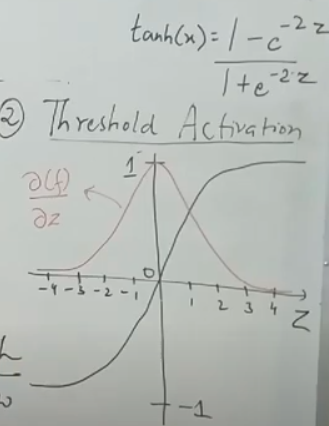 tanh(x) = 1 - e^{-2z} / 1 + e^{-2z}
② Threshold Activation
1
∂(f) / ∂z
0
-4 -3 -2 -1 1 2 3 4 Z
-1